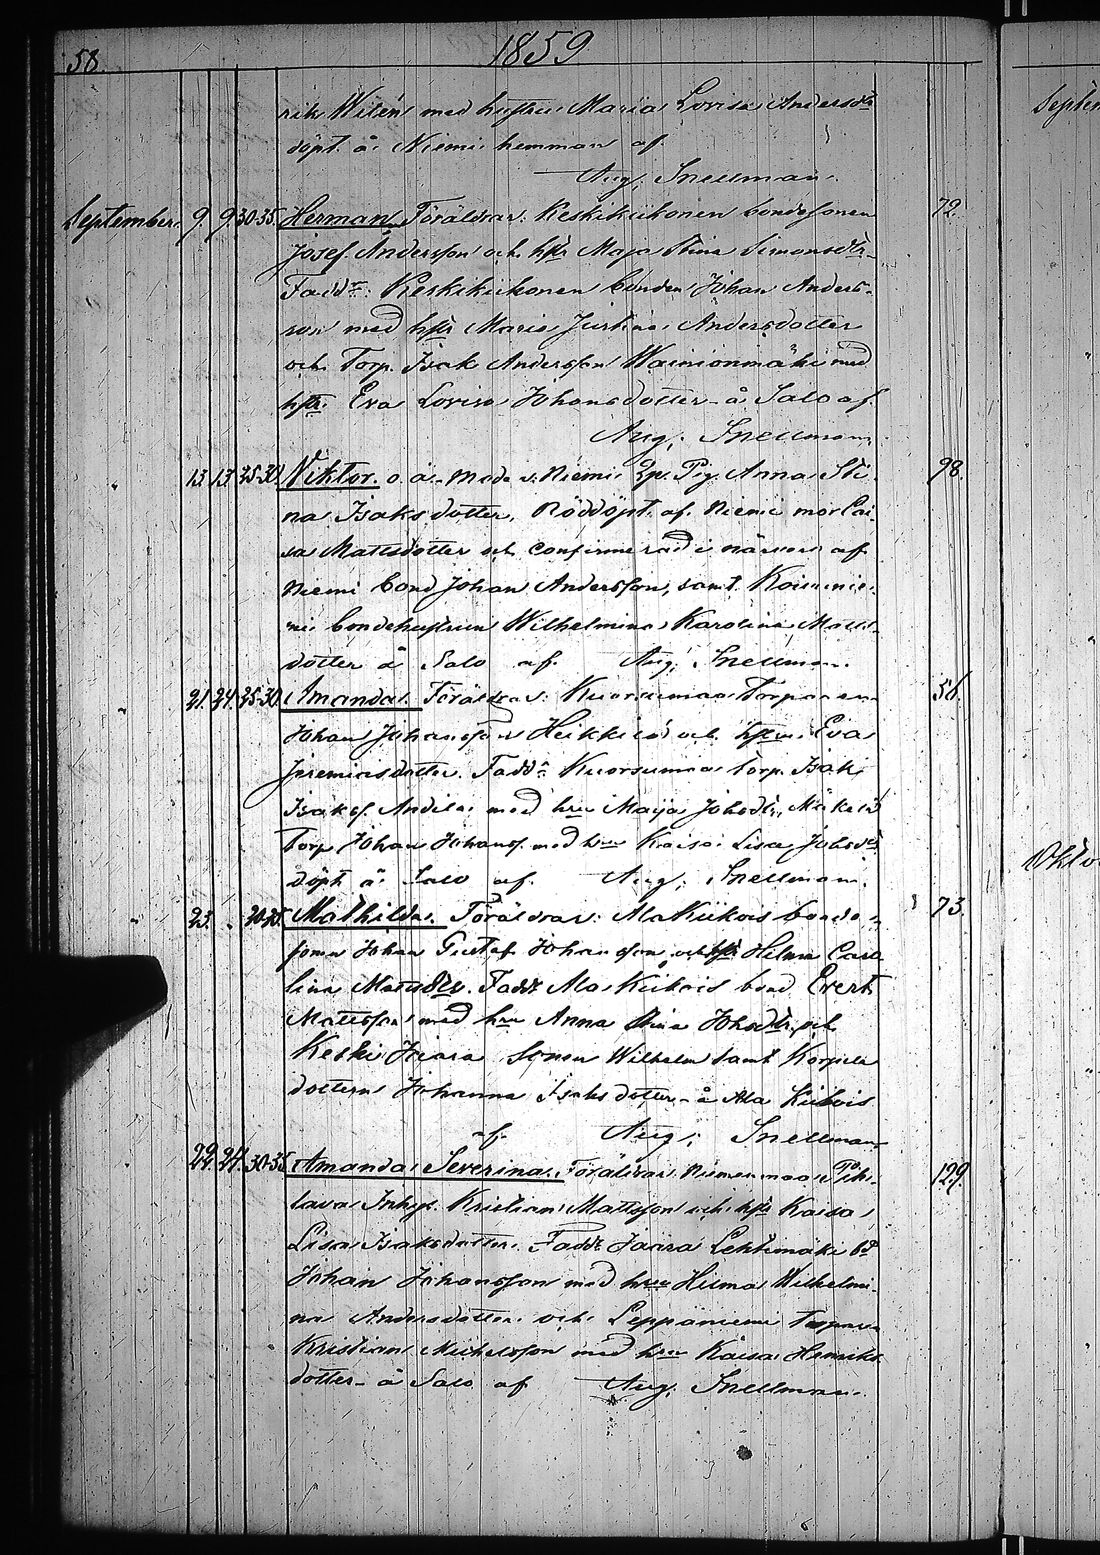 58. 1859
rik Wilén med hustru Maria Lovisa Andersdr
döpt å Niemi hemman af
Aug. Snellman.
September. 9. 9. 30-35. Herman. Föräldrar: Keskikiikonen bondesonen 72.
Josef Andersson och hstr Maja Stina Simonsdtr
Faddr: Keskikiikonen bonden Johan Anders-
son med hstr Maria Justina Andersdotter
och Torp. Isak Andersson Wainionmäki med
hstr Eva Lovisa Johansdotter å Salo af
Aug. Snellman.
13. 13. 25-30. Viktor. o. ä. Mode. v. Niemi Pig. Anna Sti- 98.
na Isaksdotter. Nöddöpt. af Niemi mor Cai-
sa Mattsdotter och confirmerad i närvaro af
Niemi bond Johan Andersson, samt
ni bondehustrun Wilhelmina Karolina Matts-
dotter å Salo af Aug. Snellman.
21. 24. 25-30. Amanda. Föräldrar: Kuorsumaa Torparen 56.
Johan Johansson Heikkilä och hstrn Eva
Jeremiasdotter. Faddr Kuorsumaa Torp. Isak
Isakss. Andila med hru Maija Johsdtr, Mäkelä
Torp Johan Johanss. med hru Kaisa Lisa Johsdtr
döpt å Salo af Aug. Snellman.
23. „ 20-25. Mathilda. Föräldrar: Ala Kiikois bonde- 73.
sonen Johan Gustaf Johansson och hstr Hilma Caro
lina Mattsdtr. Faddr Ala Kiikois bond Evert
Mattsson med hru Anna Stina Johsdtr, och
Keski Jaara sonen Wilhelm samt Korpela
dottern Johanna Isaksdotter å Ala Kiikois
af Aug. Snellman
22. 24. 30-35. Amanda Severina. Föräldrar: Niemenmaa Pih- 129.
lava Inhys. Kristian Mattsson och hstr Kaisa
Lisa Isaksdotter. Faddr Jaara Lehtimäki bd
Johan Johansson med hru Hilma Wilhelmi-
na Andersdotter och Leppäniemi Torparn
Kristian Michelsson med hru Kaisa Henriks
dotter å Salo af Aug. Snellman.
Septem
Okto